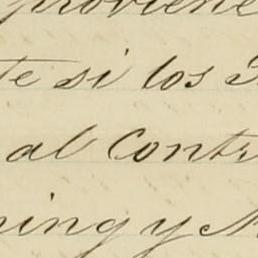 proviene
te si los
al Contr
ning y M